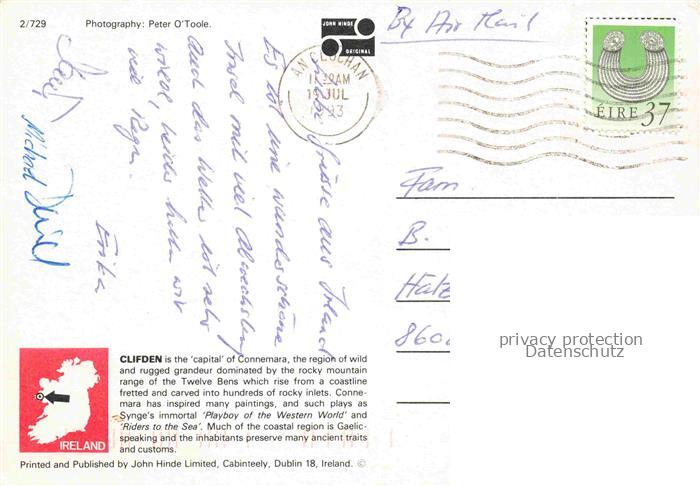 2/729 Photography: Peter O'Toole.
JOHN HINDE
ORIGINAL
By Air Mail
AN CLOCHAN
11.30AM
JUL
EIRE 37
Grüsse aus Irland
Es ist eine wunderschöne
Insel mit viel Abwechslung
und das Wetter ist sehr
leider
viel Regen.
Erika
Michael
Fam
B.
Hatz
860
privacy protection
Datenschutz
CLIFDEN is the 'capital' of Connemara, the region of wild
and rugged grandeur dominated by the rocky mountain
range of the Twelve Bens which rise from a coastline
fretted and carved into hundreds of rocky inlets. Conne-
mara has inspired many paintings, and such plays as
Synge's immortal 'Playboy of the Western World' and
'Riders to the Sea'. Much of the coastal region is Gaelic-
speaking and the inhabitants preserve many ancient traits
and customs.
IRELAND
Printed and Published by John Hinde Limited, Cabinteely, Dublin 18, Ireland. ©